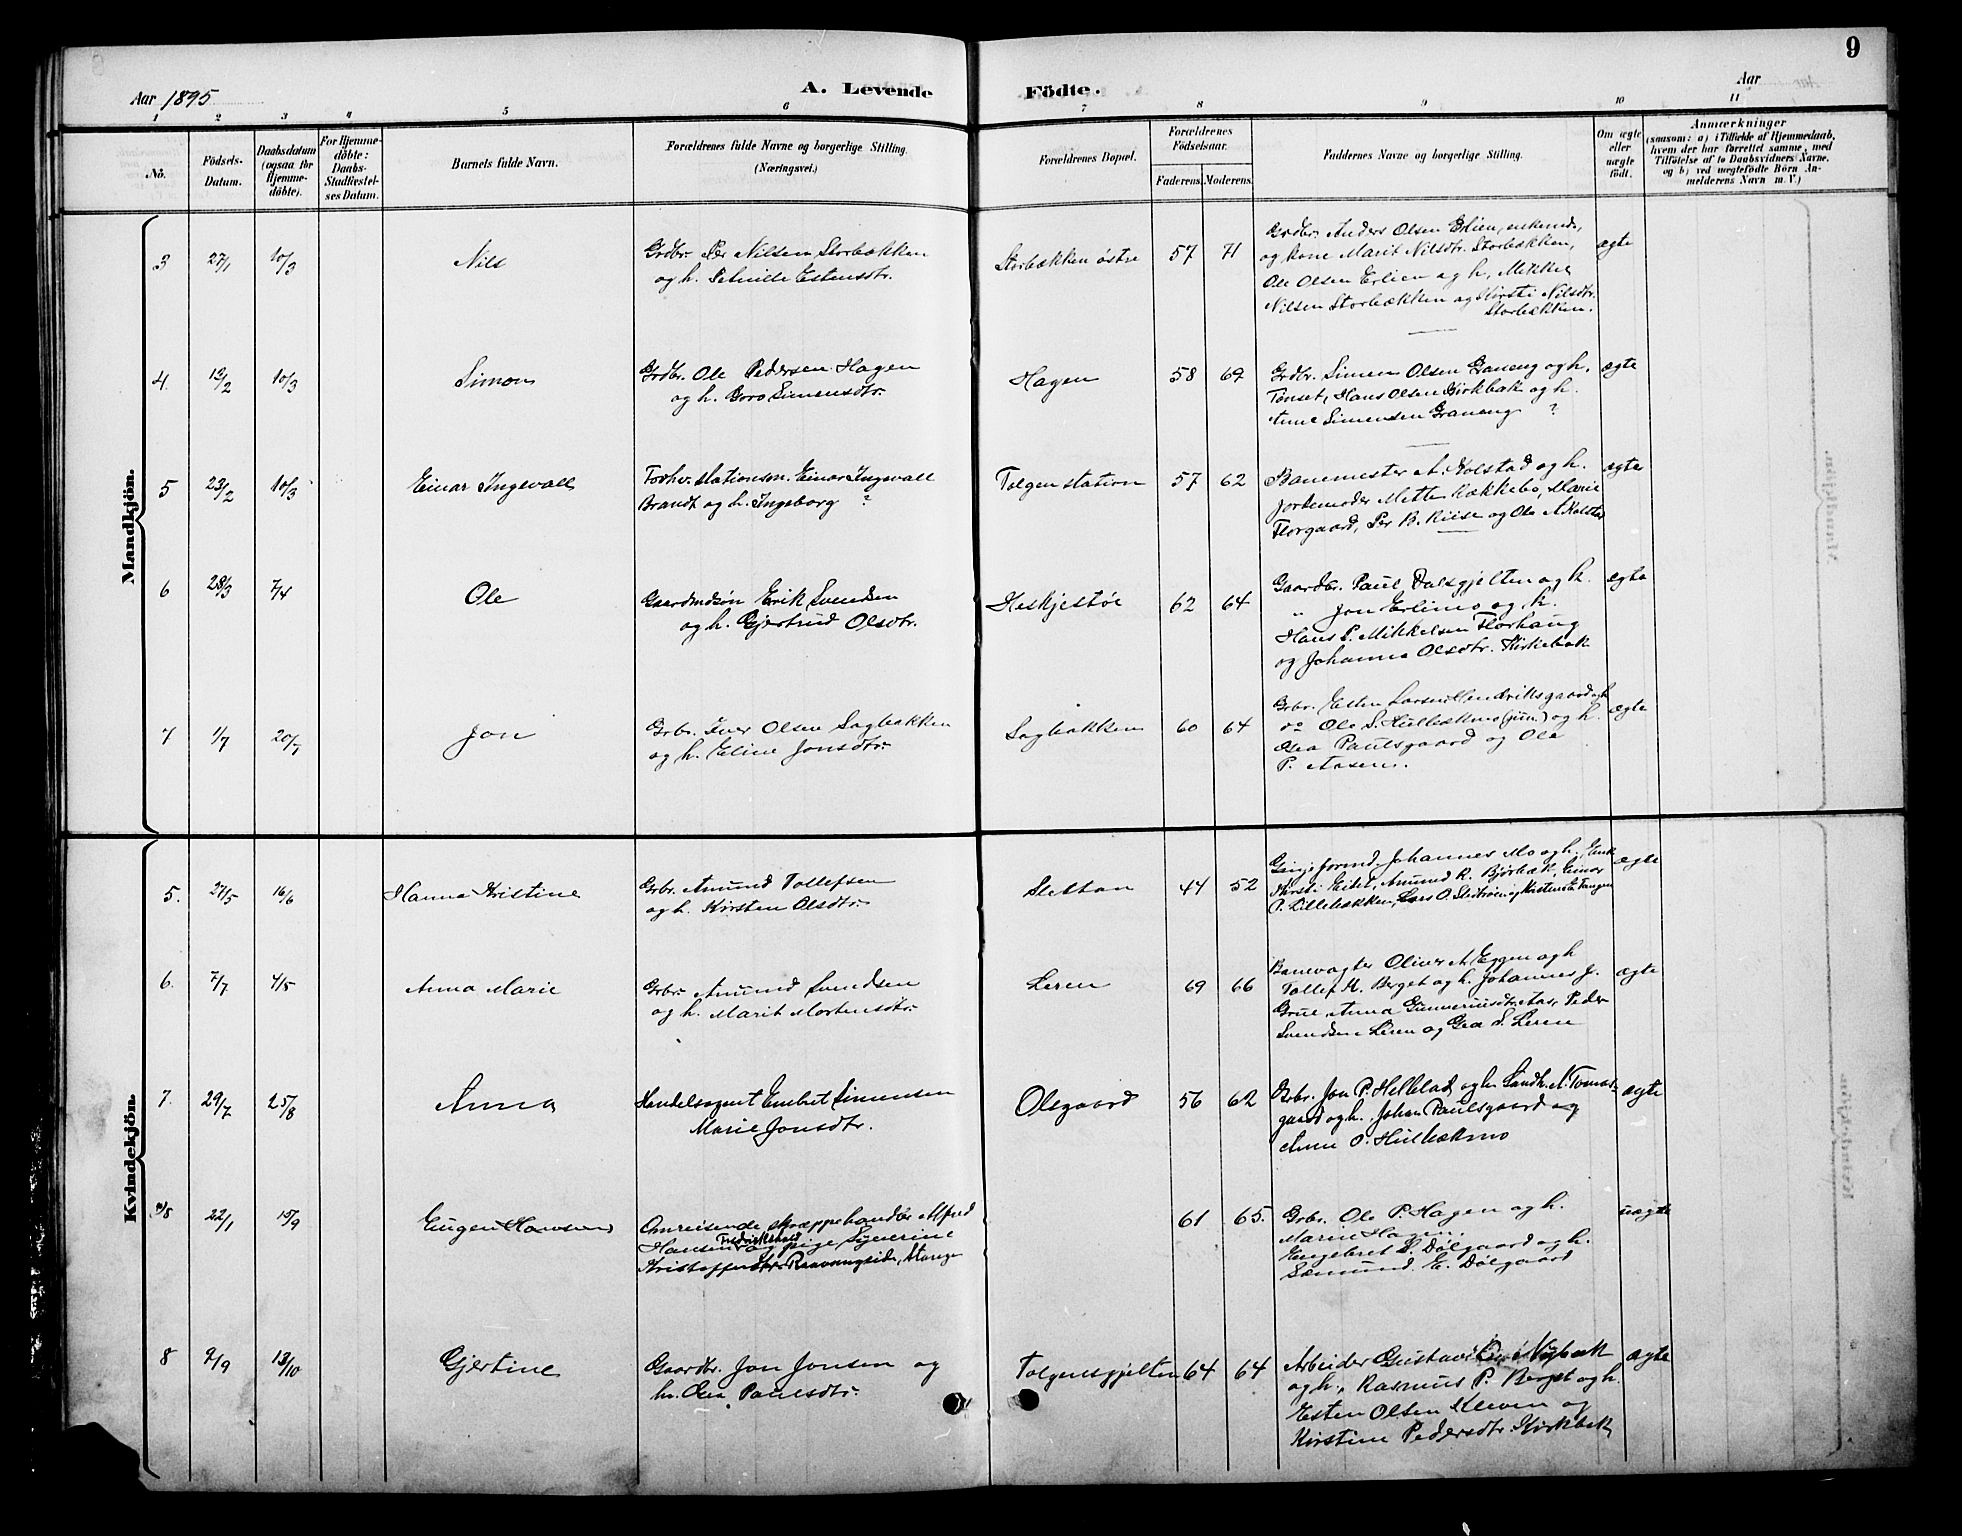 9
Aar 1895
A. Levende
Födte.
Aar
1 2 3 4 5 6 7 8 9 10 11
No.
Födsels-
Datum.
Daabsdatum
(ogsaa for
Hjemme-
döbte).
For Hjemme-
döbte:
Daabs-
Stadfæstel-
ses Datum.
Barnets fulde Navn.
Forældrenes fulde Navne og borgerlige Stilling.
(Næringsvei.)
Forældrenes Bopæl.
Forældrenes
Födselsaar.
Faderens.
Moderens.
Faddernes Navne og borgerlige Stilling.
Om ægte
eller
uægte
födt.
Anmærkninger
(saasom: a) i Tilfælde af Hjemmedaab,
hvem der har forrettet samme, med
Tilföielse af to Daabsvidners Navne,
og b) ved uægtefödte Börn An-
melderens Navn m. V.)
Mandkjön.
3 27/1 10/3 Nils
Grdbr. Per Nilsen Storbækken
og h. Pernille Estensdtr.
Storbækken östre 57 71
Grdbr. Anders Olsen Erlien, enkemd.,
og kone Marit Nilsdtr. Storbækken,
Ole Olsen Erlien og h, Mikkel
Nilsen Storbækken og Kirsti Nilsdtr.
Storbækken.
ægte
4. 13/2 10/3 Simon
Grdbr. Ole Pedersen Hagen
og h. Goro Simensdtr.
Hagen 58 69
Grdbr. Simen Olsen Graneng og h,
Tönset, Hans Olsen Kirkbak og h.
Ane Simensen Graneng ?
ægte
5 23/2 10/3 Einar Ingevall
Forhv. stationsm. Einar Ingevall
Brandt og h. Ingeborg ?
Tolgen station 57 62
Banemester A. Kolstad og h.
Jordemoder Mette Kokkebö, Marie
Florgaard, Per B. Riise og Ole A Kolstad
ægte
6 28/3 7/4 Ole
Gaardmdsön Erik Svendsen
og h. Gjertrud Olsdtr.
Heskjestöe 62 64
Gaardbr. Paul Dalsgjelten og h.
" Jon Erlimo og h.
Hans P. Mikkelsen Florhaug
og Johanna Olsdtr. Kirkebak
ægte
7 1/7 20/7 Jon
Grbr. Iver Olsen Sagbakken
og h. Eline Jonsdtr.
Sagbakken 60 64
Grbr. Esten Larsen Hendriksgaard og h
do Ole S. Hulbækmo (jun.) og h.
Gea Paulsgaard og Ole
P. Aasen.
ægte
Kvindekjön.
5. 27/5 16/6 Hanna Kristine
Grbr. Amund Tollefsen
og h. Kirsten Olsdtr.
Sletten 44 52
Johannes Mo og h. Enk
Kirsti Eidet, Amund R. Björbæk, Einar
P. Lillebækken, Lars O. Sletröen og Kristense Tangen
ægte
6. 7/7 4/5 Anna Marie
Grbr. Amund Svendsen
og h. Marit Mortensdtr.
Leren 69 66
Banevogter Oliver A. Eggen og h
Tollef H. Berget og h. Johannes J.
Grue, Anna Gunneriusdtr. Aas, Peder
Svendsen Leren og Gea S. Leren
ægte
7. 29/7 25/8 Anna
Handelsagent Embret Simensen
Marie Jonsdtr.
Olsgaard 56 62
Grbr. Jon P. Hellelad og h Landh. N. Tomas-
gaard og h. Johan Paulsgaard og
Anne O. Hulbækmo
ægte
22/1 15/9 Eugen Hansen
Omreisende skræppehandler Alfred
Hansen Fredrikshald og pige Syverine
Kristoffersdtr. Raavangeide, Stange
61 65.
Grbr. Ole P. Hagen og h.
Marie Hagen.
Engebret S. Dölgaard og h.
Semund E. Dölgaard
uægte
8 2/9 13/10 Gjertine
Gaardbr. Jon Jonsen og
h. Gea Paulsdtr.
Tolgensgjelten 64 64
Arbeider Gustav Nybak
og h, Rasmus P. Berget og h.
Esten Olsen Kleven og
Kirstine Pedersdtr. Kirkbak
ægte